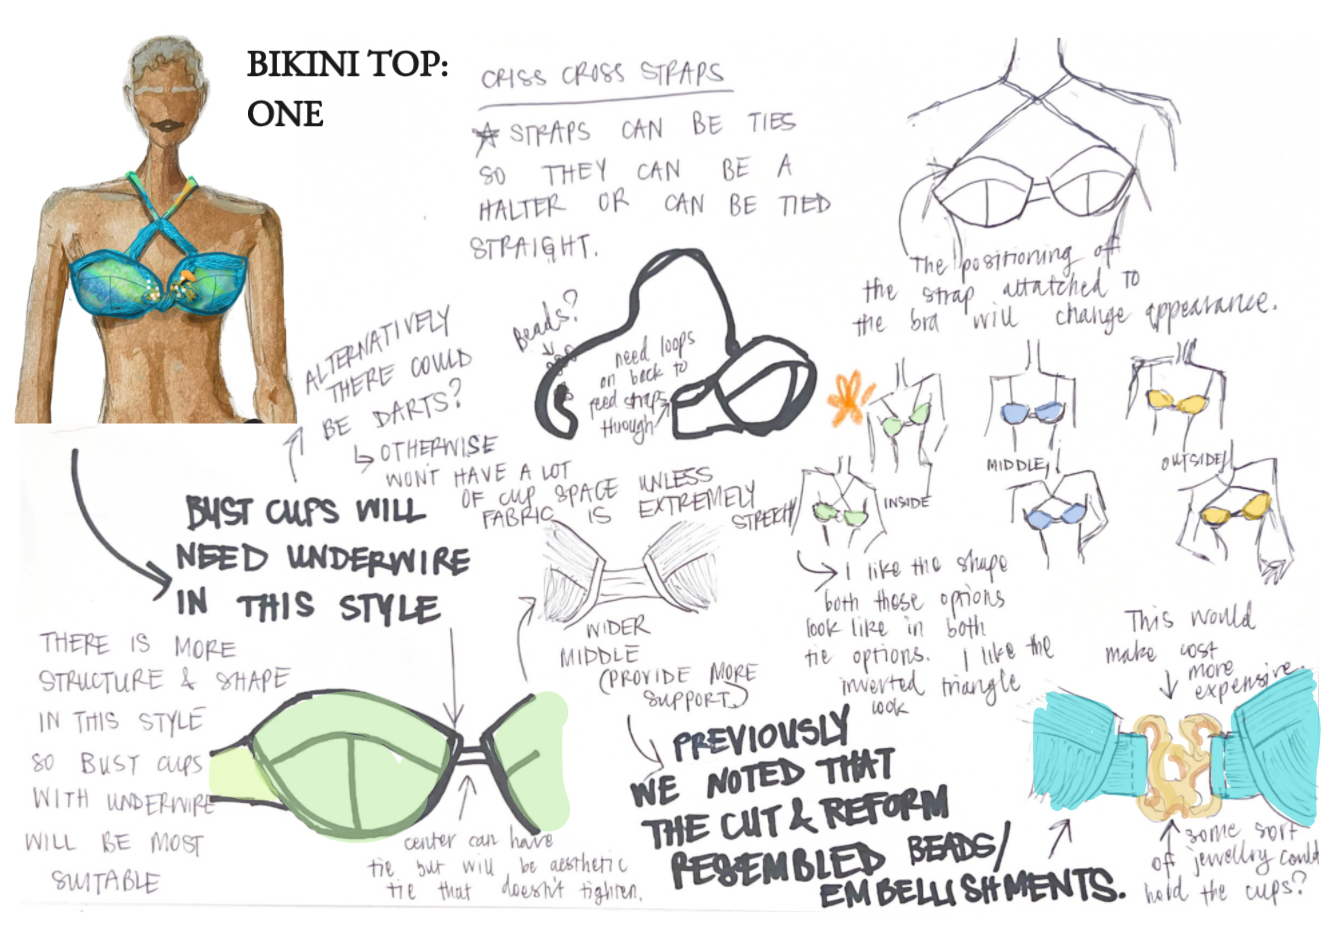 BIKINI TOP:
ONE
CRISS CROSS STRAPS
STRAPS CAN BE TIES
SO THEY CAN BE A
HALTER OR CAN BE TIED
STRAIGHT.
The positioning of
the strap attatched to
the bra will change appearance.
Beads?
need loops
on back to
feed straps
through
ALTERNATIVELY
THERE COULD
BE DARTS?
OTHERWISE
WON'T HAVE A LOT
OF CUP SPACE UNLESS
FABRIC IS EXTREMELY
STRETCHY
INSIDE
MIDDLE
OUTSIDE
I like the shape
both these options
look like in both
tie options. I like the
inverted triangle
look
BUST CUPS WILL
NEED UNDERWIRE
IN THIS STYLE
THERE IS MORE
STRUCTURE & SHAPE
IN THIS STYLE
SO BUST CUPS
WITH UNDERWIRE
WILL BE MOST
SUITABLE
WIDER
MIDDLE
(PROVIDE MORE
SUPPORT)
center can have
tie but will be aesthetic
tie that doesn't tighten.
PREVIOUSLY
WE NOTED THAT
THE CUT & REFORM
RESEMBLED BEADS/
EMBELLISHMENTS.
This would
make cost
more
expensive.
some sort
of jewellry could
hold the cups?